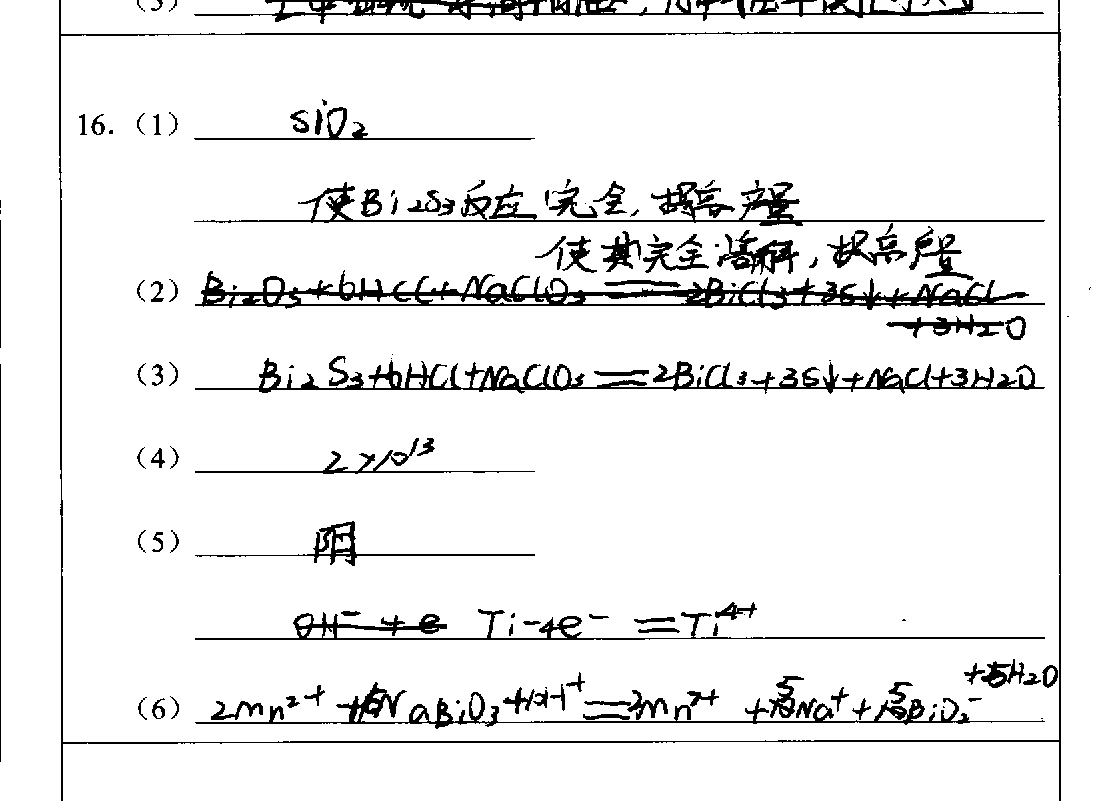 (3)
16. (1) SiO₂
使Bi₂S₃反应完全，提高产量
使其完全溶解，提高产量
(2) Bi₂O₃+6HCl+NaClO₃=2BiCl₃+3S↓+NaCl
+3H₂O
(3) Bi₂S₃+6HCl+NaClO₃=2BiCl₃+3S↓+NaCl+3H₂O
(4) 2×10¹³
(5) 阳
OH⁻+e Ti-4e⁻=Ti⁴⁺
+5H₂O
(6) 2Mn²⁺+5NaBiO₃+10H⁺=2Mn⁷⁺+5Na⁺+5BiO₂⁻